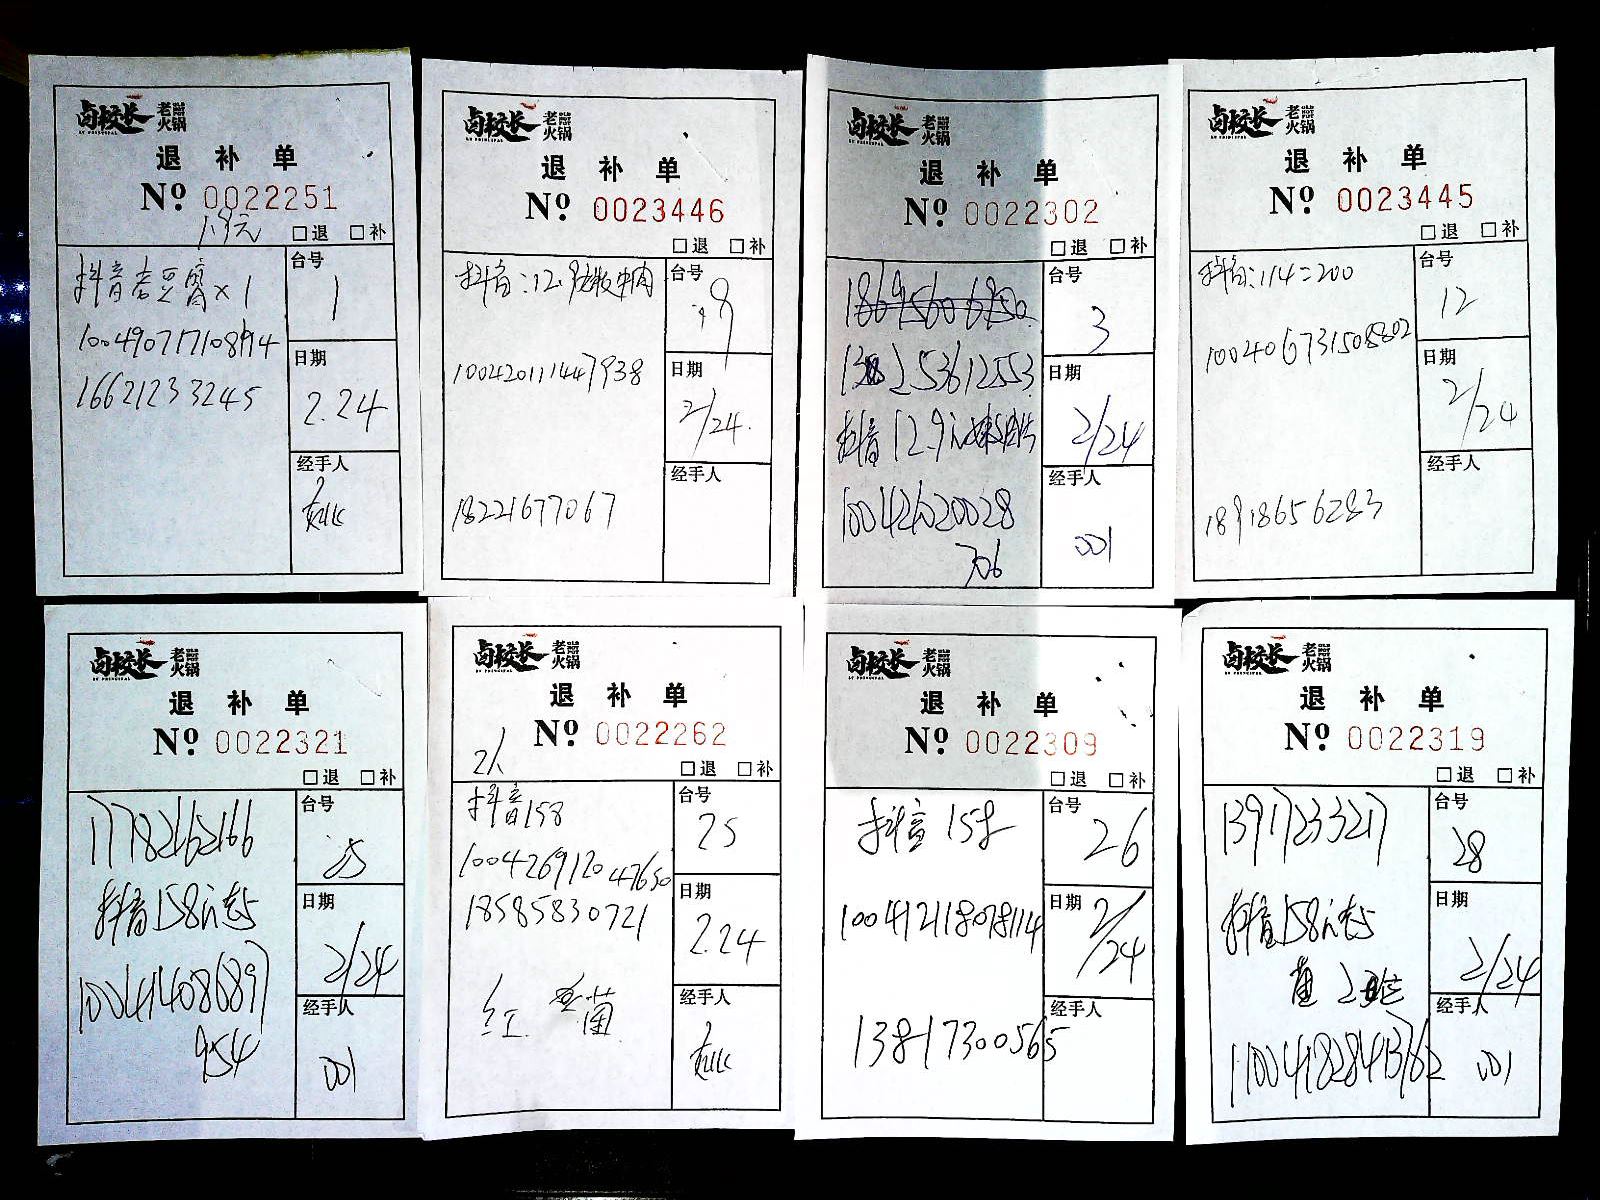 卤校长 老火锅
LU PRINCIPAL
退补单
Nº 0022251
1.9元
□退 □补
抖音 豆腐×1
16621233245
台号
1
日期
2.24
经手人
卤校长 老火锅
LU PRINCIPAL
退补单
Nº 0023446
□退 □补
抖音:12.9 牛肉
1004201114447938
18221677067
台号
9
日期
2/24.
经手人
卤校长 老火锅
退补单
Nº 0022302
□退 □补
抖音12.9
100426020028
706
台号
3
日期
2/24
经手人
001
卤校长 老火锅
LU PRINCIPAL
退补单
Nº 0023445
□退 □补
抖音:114=200
100406731508802
18918656283
台号
12
日期
2/24
经手人
卤校长 老火锅
LU PRINCIPAL
退补单
Nº 0022321
□退 □补
17782162166
抖音158
954
台号
25
日期
2/24
经手人
001
卤校长 老火锅
LU PRINCIPAL
退补单
Nº 0022262
2人
□退 □补
抖音158
1004269120 47650
18585830721
红 菌
台号
25
日期
2.24
经手人
卤校长 老火锅
LU PRINCIPAL
退补单
Nº 0022309
□退 □补
抖音158
100412118078114
13817300565
台号
26
日期
2/24
经手人
卤校长 老火锅
LU PRINCIPAL
退补单
Nº 0022319
□退 □补
13917233217
抖音158
台号
28
日期
2/24
经手人
001